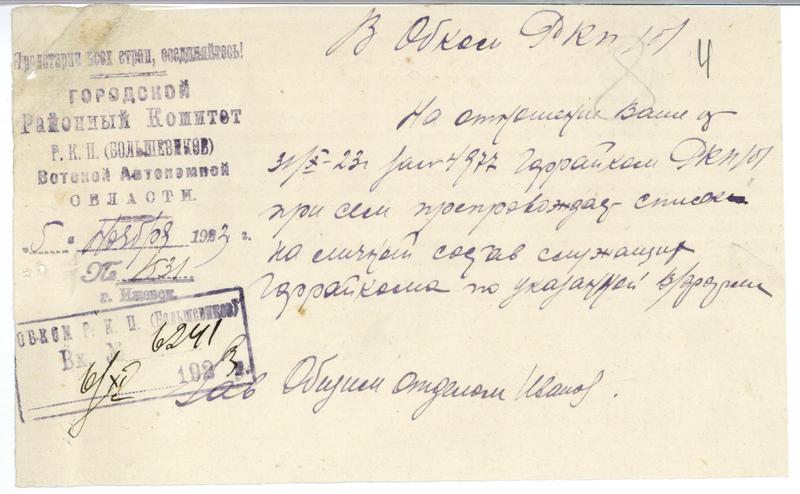 Пролетарии всех стран, соединяйтесь!
ГОРОДСКОЙ
Районный Комитет
Р. К. П. (БОЛЬШЕВИКОВ)
Вотской Автономной
ОБЛАСТИ.
„5" Ноября 1923 г.
№ 1531
г. Ижевск.
ОБКОМ Р. К. П. (Большевиков)
Вх. № 6241
6/XI 1923 г.
В Обком РКП/б/
4
На отношение Ваше от
31/X-23г за № 4977 Горрайком РКП/б/
при сем препровождает список
на личный состав служащих
Горрайкома по указанной
Зав Общим отделом Иванов.